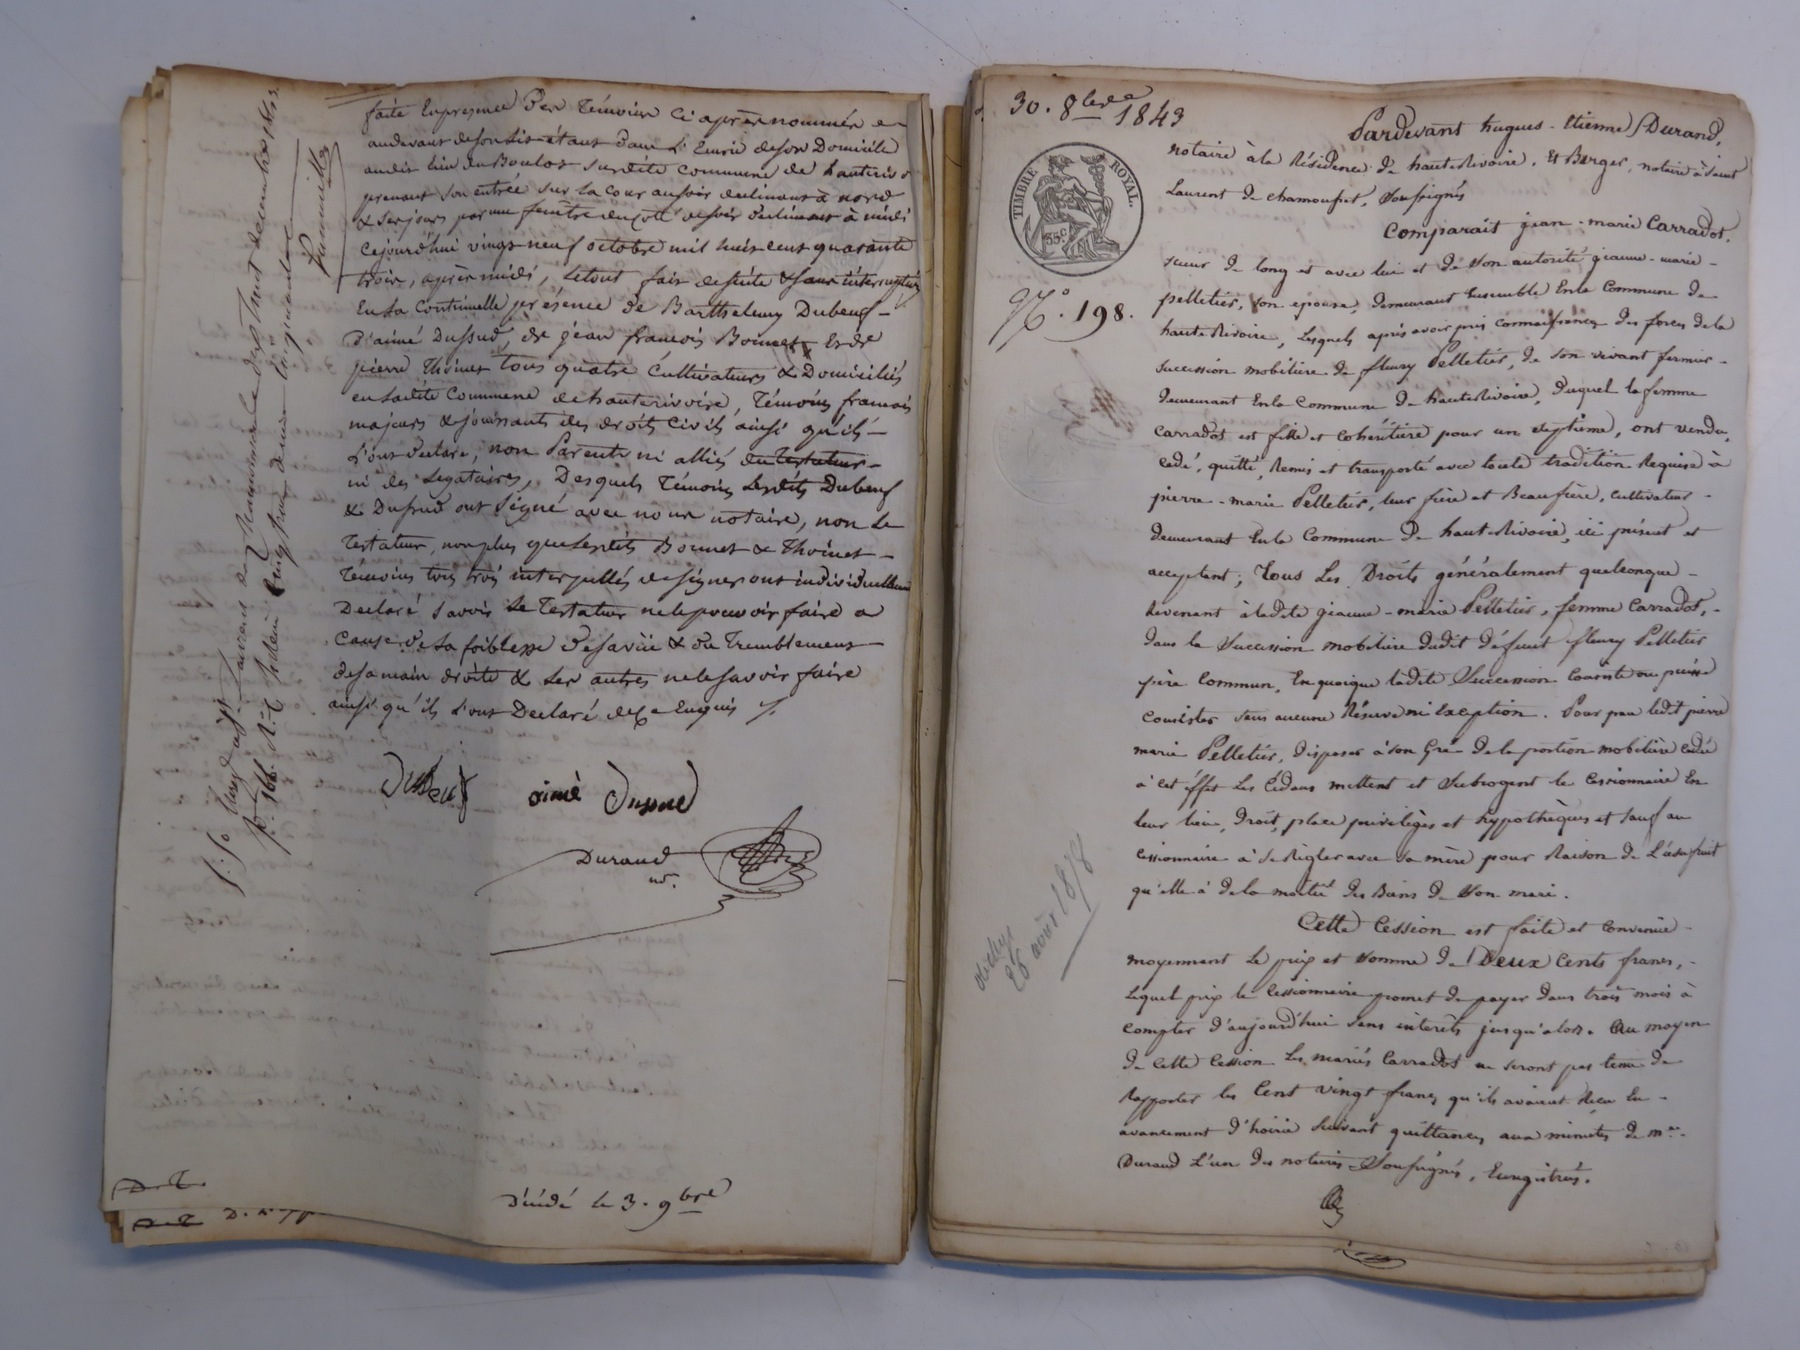 faite en presence des témoins ci après nommés &
au devant de son lit étant dans l'Ecurie de son Domicile
au dit lieu du Boulot susdite commune de hauterivoire
prenant son entrée sur la cour au soir declinant à nord
& ses jours par une fenêtre du côté de soir déclinant à midi
Cejourd'hui vingt neuf octobre mil huit cent quarante
trois, après midi, le tout fait de suite & sans interruption
En la Continuelle présence de Barthelemy Dubeuf
d'aimé Dussud, de jean francois Bonnet & de
pierre Thoinet tous quatre Cultivateurs & Domiciliés
en ladite Commune de hauterivoire, Témoins francais
majeurs & jouissants des droits Civils ainsi qu'ils
l'ont declaré, non Parents ni alliés du Testateur
ni des Legataires, Desquels Témoins lesdits Dubeuf
& Dussud ont signé avec nous notaire, non le
Testateur, non plus que lesdits Bonnet & Thoinet
Témoins tous trois interpellés de signer ont individuellement
Declaré savoir le Testateur ne le pouvoir faire a
cause de sa foiblesse de sa vüe & du Tremblement
de sa main droite & les autres ne le savoir faire
ainsi qu'ils l'ont Declaré de ce Enquis /.
Dubeuf aimé Dussud
Durand
nre.
Décédé le 3. 9bre
D. T.
30. 8bre 1843
TIMBRE ROYAL.
35c
No. 198.
Pardevant hugues-Etienne Durand,
notaire à la Résidence de hauteRivoire, Et Berger, notaire à Saint
Laurent de chamousset, Soussignés
Comparait jean-marie Carradot,
scieur de long et avec lui et de son autorité jeanne-marie
pelletier, son epouse, demeurant Ensemble En la Commune de
hauteRivoire, Lesquels après avoir pris connaissance des forces de la
succession mobiliere de fleury Pelletier, de son vivant fermier
demeurant En la Commune de hauteRivoire, duquel la femme
Carradot est fille et cohéritière pour un septième, ont vendu,
cédé, quitté, Remis et transporté avec toute tradition Requise à
pierre-marie Pelletier, leur frère et Beaufrère, cultivateur
demeurant En la Commune de hauteRivoire, ici présent et
acceptant; Tous Les Droits généralement quelconque
Revenant à ladite jeanne-marie Pelletier, femme Carradot,
dans la Succession mobiliere dudit défunt fleury Pelletier
père Commun, En quoique ladite Succession Consiste ou puisse
Consister sans aucune Réserve ni Exception. Pour par ledit pierre
marie Pelletier, disposer à son Gré de la portion mobiliere cédée
à cet éffet Les Cédans mettent et Subrogent le Cessionnaire En
leur lieu, Droit, place privilèges et hypothèques et sauf au
cessionnaire à se Régler avec sa mère pour Raison de L'usufruit
qu'elle a de la moitié des Biens de Son mari.
Cette Cession est faite et Convenue
moyennant Le prix et somme de Deux Cents francs,
Lequel prix le Cessionnaire promet de payer dans trois mois à
compter d'aujourd'hui sans intérêts jusqu'alors. Au moyen
de cette Cession Les mariés Carradot ne seront pas tenu de
Rapporter les Cent vingt francs qu'ils avaient Reçu En
avancement d'hoirie suivant quittances aux minutes de me.
Durand L'un des notaires Soussignés, Enregistrées.
26 août 1878